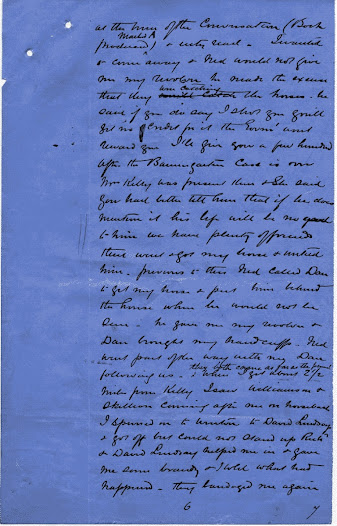 at the time of the Conversation (Book
Marked A
produced) & entry read - I wanted
to come away & Ned would not give
me my revolver he made the excuse
that they were catching the horse. he
said if you do say I shot you you'll
get no credit for it the Govmt wont
reward you I'll give you a few hundred
after the Baumgarten Case is over
Mrs Kelly was present then & She said
you had better tell them that if he does
mention it his life will be no good
to him we have plenty of friends
then went & got my horse & untied
him - previous to this Ned called Dan
to get my horse & put him behind
the house where he would not be
seen - he gave me my revolver &
Dan brought my handcuffs - Ned
went part of the way with me Dan
following us - they both came as far as the
when I got about 2 1/2
miles from Kelly I saw Williamson &
Skillion coming after me on horseback
I spurred on to Winton to David Lindsay
& got off but could not stand up
& David Lindsay helped me in & gave
me some brandy & I told what had
happened - they bandaged me again
6
7